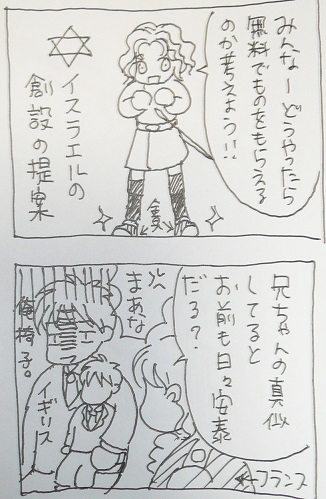 みんなーどうやったら
無料でものをもらえる
のか考えよう!!
イスラエルの
創設の提案
兄ちゃんの真似
してると
お前も日々安泰
だろ?
まあな
俺椅子。
イギリス
フランス